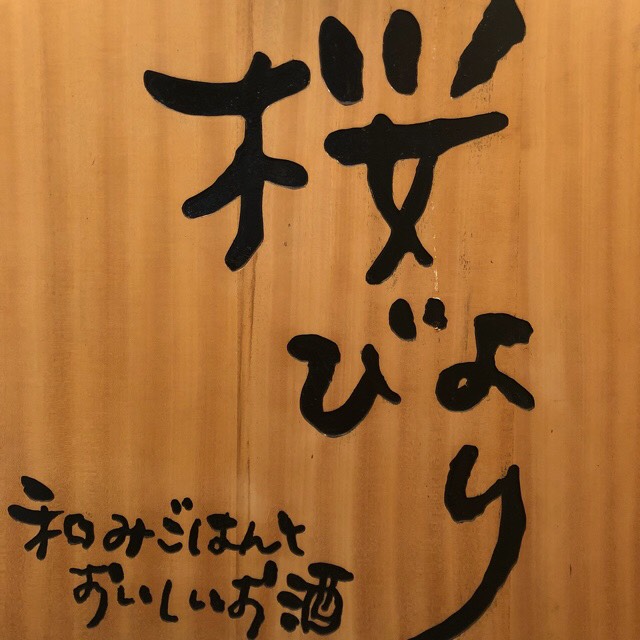 桜びより
和みごはんと
おいしいお酒